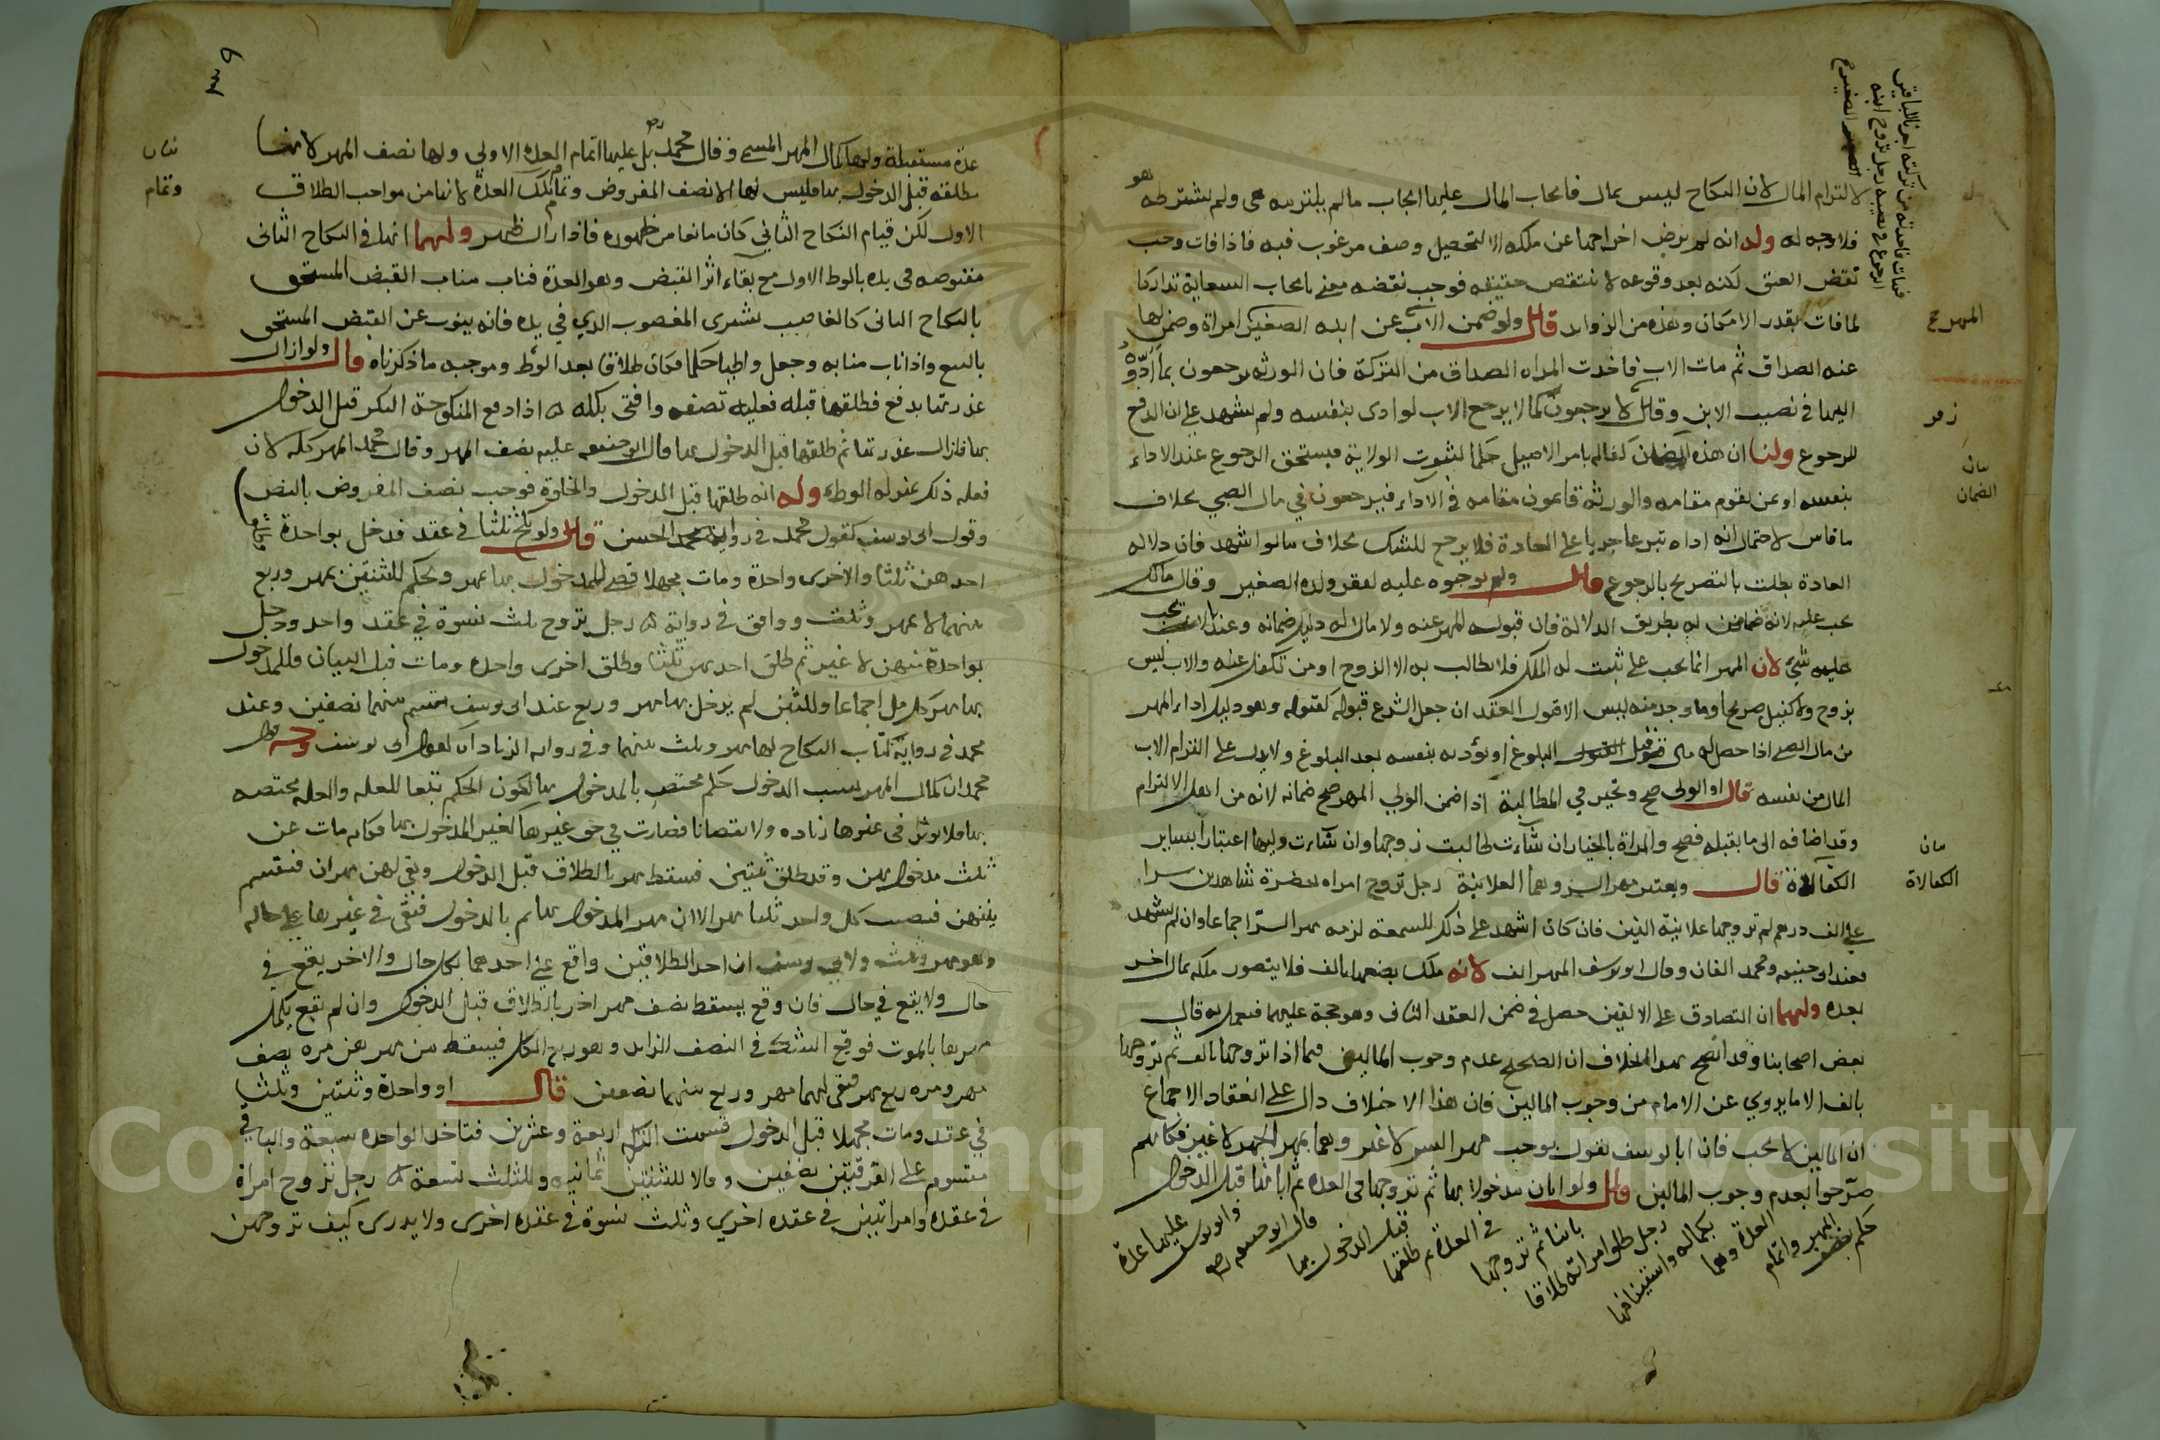 لالتزام المال لان النكاح ليس بمال فايجاب المال عليها ايجاب مالم يلتزمه هى ولم يشترطه هو
فلا وجه له وله انه لم يرض اخراجها عن ملكه الا لتحصيل وصف مرغوب فيه فاذا فات وجب
نقض العتق لكنه بعد وقوعه لا ينتقض حقيقة فوجب نقضه معنى بايجاب السعاية تداركا
لما فات بقدر الامكان وهذه من الزوايد قال ولو ضمن الاب عن ابنه الصغير امراة وضمن لها
عنه الصداق ثم مات الاب فاخذت المراه الصداق من التركة فان الورثه يرجعون بما ادوه
اليها فى نصيب الابن وقال لا يرجعون كما لا يرجع الاب لو ادى بنفسه ولم يشهد على ان الدفع
للرجوع ولنا ان هذه كفالة بامر الاصيل حكما لثبوت الولاية فيستحق الرجوع عند الاداء
بنفسه او عن يقوم مقامه والورثة قايمون مقامه فى الاداء فيرجعون في مال الصبي بخلاف
ما قاس لاحتمال انه اداه تبرعا جريا على العادة فلا يرجع للشك بخلاف ما لو اشهد فان دلالة
العادة بطلت بالتصريح بالرجوع قال ولم يوجبوه عليه لفقر ولده الصغير وقال مالك
يجب عليه لانه ضامن له بطريق الدلالة فان قبوله المهر عنه ولا مال له دليل ضمانه وعندنا لا يجب
عليه شئ لان المهر انما يجب على ثبت له الملك فلا يطالب به الا الزوج او من تكفل عنه والاب ليس
بزوج ولا كفيل صريحا وما وجد منه ليس الا قبول العقد ان جعل الشرع قبوله كقبوله وهو دليل اداء المهر
من مال الصبي اذا حصل له مال قبل البلوغ او يؤديه بنفسه بعد البلوغ ولا يدل على التزام الاب
المال من نفسه قال او الولى صح وتخير في المطالبة اذا ضمن الولي المهر صح ضمانه لانه من اهل الالتزام
وقد اضافه الى ما يقبله فصح والمراة بالخيار ان شآءت طالبت زوجها وان شآءت وليها اعتبارا بساير
الكفالة قال ويعتبر مهر السر وهما العلانية رجل تزوج امراه بحضرة شاهدين سرا
على الف درهم ثم تزوجها علانية الفين فان كان اشهد على ذلك للسمعة لزمه مهر السر اجماعا وان لم يشهد
فعند ابو حنيفه ومحمد الفان وقال ابو يوسف المهر الف لانه ملك بضعها بالف فلا يتصور ملكه بمال اخر
بعده ولهما ان التصادق على الالفين حصل فى ضمن العقد الثانى وهو حجة عليهما فيعمل به قال
بعض اصحابنا وقد اتضح بهذا الخلاف ان الصحيح عدم وجوب المالين فيما اذا تزوجها بالف ثم تزوجها
بالف الا ما يروي عن الامام من وجوب المالين فان هذا الاختلاف دال على انعقاد الاجماع
ان المالين لا يجب فان ابا يوسف يقول بوجب مهر السر لا غير وهما بمهر الجهر لا غير فكانهم
صرحوا بعدم وجوب المالين قال ولو ابان مدخولا بها ثم تزوجها فى العدة ثم ابانها قبل الدخول
حكم بنصف المهر واتمام العدة وهما بكماله واستينافها
رجل طلق امراته طلاقا باينا ثم تزوجها فى العدة ثم طلقها قبل الدخول بها قال ابو حنيفه رحمه وابو يوسف عليها عدة
المهر ح
زفر
بيان الضمان
بيان الكفالة
عدة مستقبلة ولها كمال المهر المسمى وقال محمد رحمه بل عليها اتمام العدة الاولى ولها نصف المهر لانها
مطلقة قبل الدخول بها فليس لها الا نصف المفروض وتمام تلك العدة لانها من مواجب الطلاق
الاول لكن قيام النكاح الثاني كان مانعا من ظهوره فاذا زال ظهر ولهما انها فى النكاح الثانى
مقبوضه فى يده بالوطء الاول مع بقاء اثر القبض وهو العدة فناب مناب القبض المستحق
بالنكاح الثانى كالغاصب يشترى المغصوب الذي في يده فانه ينوب عن القبض المستحق
بالبيع واذا ناب منابه وجعل واطيا حكما فكان طلاقا بعد الوطء وموجبه ما ذكرناه قال ولو ازال
عذرتها بدفع فطلقها قبله فعليه نصفه وافتى بكله اذا دفع المنكوحة البكر قبل الدخول
بها فازال عذرتها ثم طلقها قبل الدخول بها قال ابو حنيفه عليه نصف المهر وقال محمد المهر كله لان
فعله ذلك بمنزله الوطء وله انه طلقها قبل الدخول والخلوة فوجب نصف المفروض بالنص
وقول ابى يوسف كقول محمد فى رواية محمد الحسن قال ولو نكح ثلثا في عقد فدخل بواحدة
احدهن ثلثا والاخرى واحدة ومات مجهلا قضى للمدخول بها بمهر وبحكم للثنتين بمهر وربع
بينهما لا بمهر وثلث ووافق فى رواية رجل تزوج ثلث نسوة في عقد واحد ودخل
بواحدة منهن لا غير ثم طلق احديهن ثلثا وطلق اخرى واحده ومات قبل البيان فللمدخول
بها مهر كامل اجماعا وللثنتين لم يدخل بهما مهر وربع عند ابى يوسف يقسم بينهما نصفين وعند
محمد فى رواية كتاب النكاح لهما مهر وثلث بينهما وفى روايه الزيادات كقول ابى يوسف وجه قول
محمد ان كمال المهر بسبب الدخول حكم مختص بالمدخول بها لكون الحكم تبعا للعله والعله مختصه
بها فلا يوثر فى غيرها زياده ولا نقصانا فصارت في حق غيرها كغير المدخول بها فكانه مات عن
ثلث مدخول بهن وقد طلق ثنتين فسقط مهر بالطلاق قبل الدخول وبقى لهن مهران فتقسم
بينهن فنصيب كل واحد ثلثا مهر الا ان مهر المدخول بها تم بالدخول فبقى فى غيرها على حاله
وهو مهر وثلث ولابي يوسف ان احد الطلاقين واقع على احدهما بكل حال والاخر يقع في
حال ولا يقع في حال فان وقع يسقط نصف مهر اخر بالطلاق قبل الدخول وان لم يقع يكمل
مهرها بالموت فوقع الشك فى النصف الزايد وهو ربع الكل فيسقط من مهرهن مره نصف
مهر ومره ربع مهر فبقى لهما مهر وربع بينهما نصفين قال او واحدة وثنتين وثلثا
في عقد ومات مجهلا قبل الدخول قسمت الثلثه اربعة وعشرين فتاخذ الواحده سبعة والباقي
مقسوم على الفرقتين نصفين وقالا للثنتين ثمانيه وللثلث تسعة رجل تزوج امراة
فى عقده وامراتين فى عقده اخري وثلث نسوة فى عقدة اخرى ولا يدرى كيف تزوجهن
Copyright © King Saud University